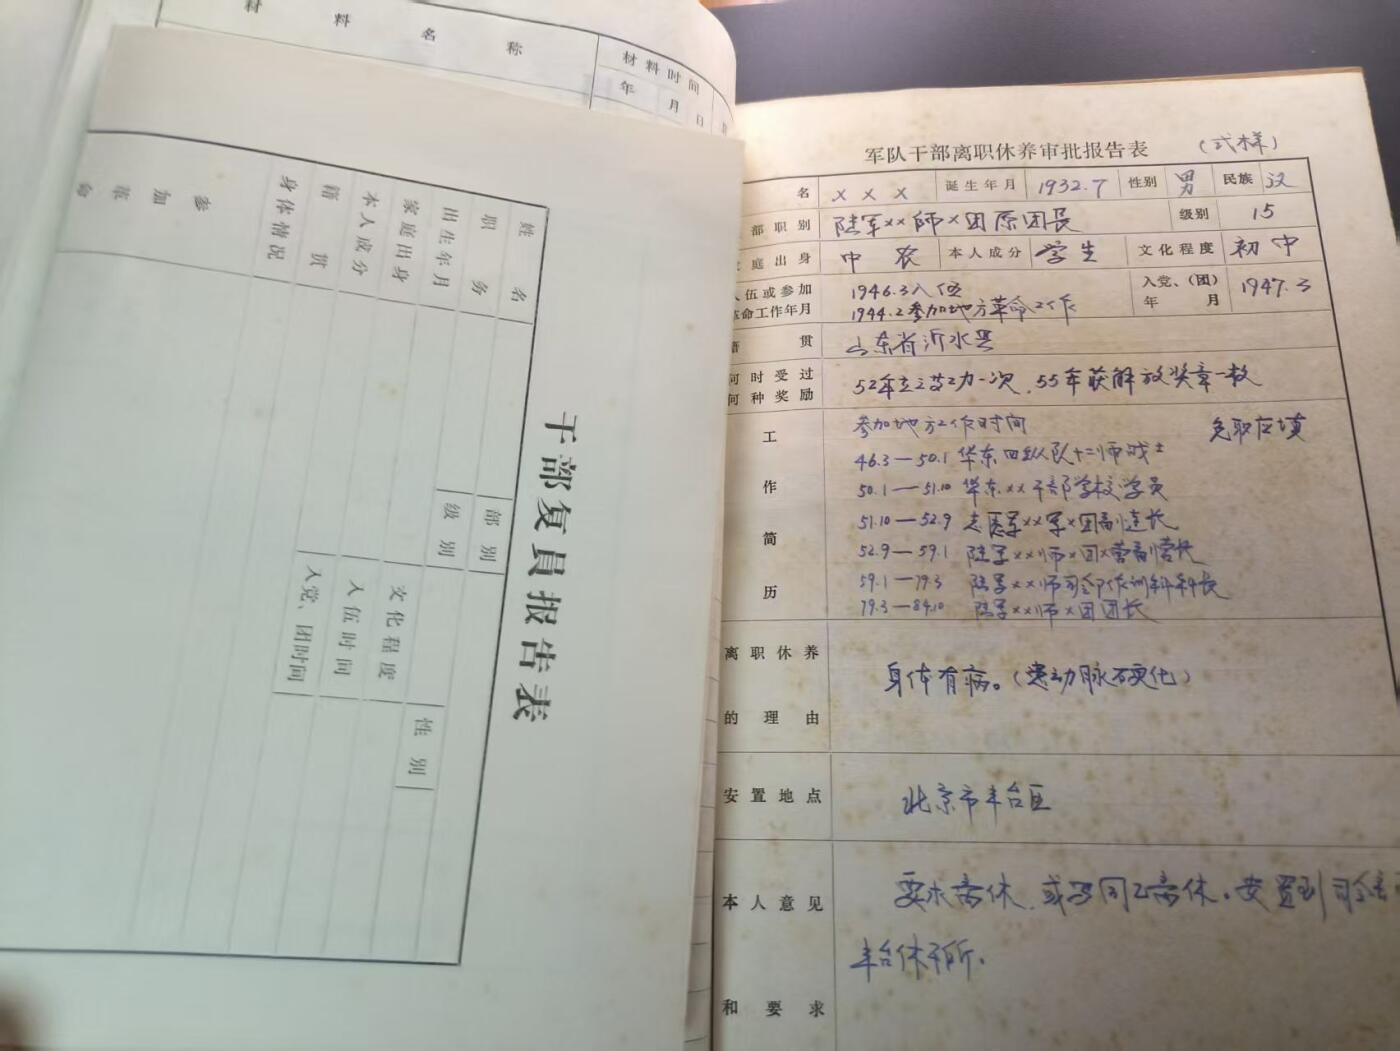 材 料 名 称
材 料 时 间
年 月 日
干部复员报告表
姓 名
部 别
职 务
级 别
性 别
出生年月
家庭出身
文化程度
本人成分
入伍时间
籍 贯
入党、团时间
身体情况
参 加 革 命
军队干部离职休养审批报告表 (式样)
名 ××× 诞生年月 1932.7 性别 男 民族 汉
部职别 陆军××师×团原团长 级别 15
庭出身 中农 本人成分 学生 文化程度 初中
入伍或参加 1946.3入伍 入党、(团) 1947.3
革命工作年月 1944.2参加地方革命工作 年 月
籍 贯 山东省沂水县
何时受过
何种奖励 52年立三等功一次,55年获解放奖章一枚
工 作 简 历
参加地方工作时间 免职应填
46.3—50.1 华东四纵队十二师战士
50.1—51.10 华东××干部学校学员
51.10—52.9 志愿军××军×团副连长
52.9—59.1 陆军××师×团×营副营长
59.1—79.3 陆军××师司令部作训科科长
79.3—84.10 陆军××师×团团长
离职休养
的理由 身体有病。(患动脉硬化)
安置地点 北京市丰台区
本人意见 要求离休,或写同意离休。安置到司令部
丰台休干所。
和要求